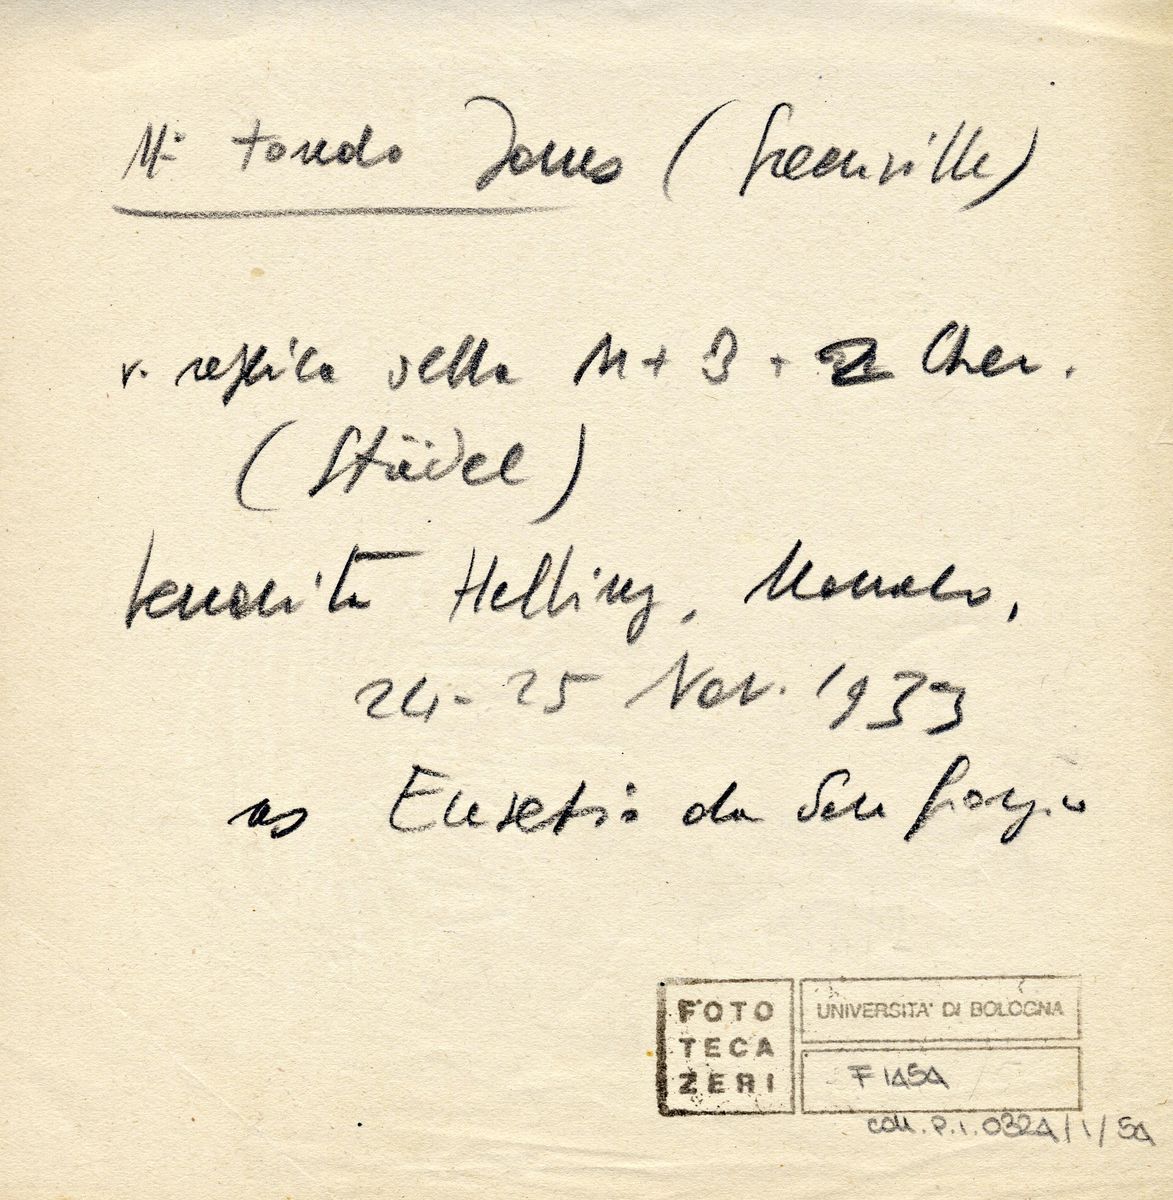 Mº tondo Jones (Greenville)
v. replica della M + B + 2 Cher.
(Städel)
vendita Helbing, Monaco,
24-25 Nov. 1933
as Eusebio da San Giorgio
FOTO
TECA
ZERI
UNIVERSITA' DI BOLOGNA
coll. P.I. 0324/1/5A